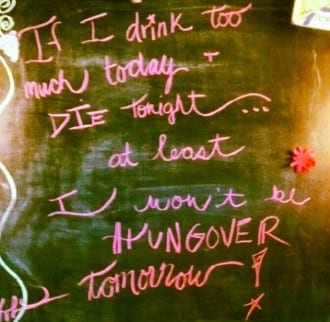 If I drink too
much today +
DIE tonight...
at least
I won't be
HUNGOVER
tomorrow!